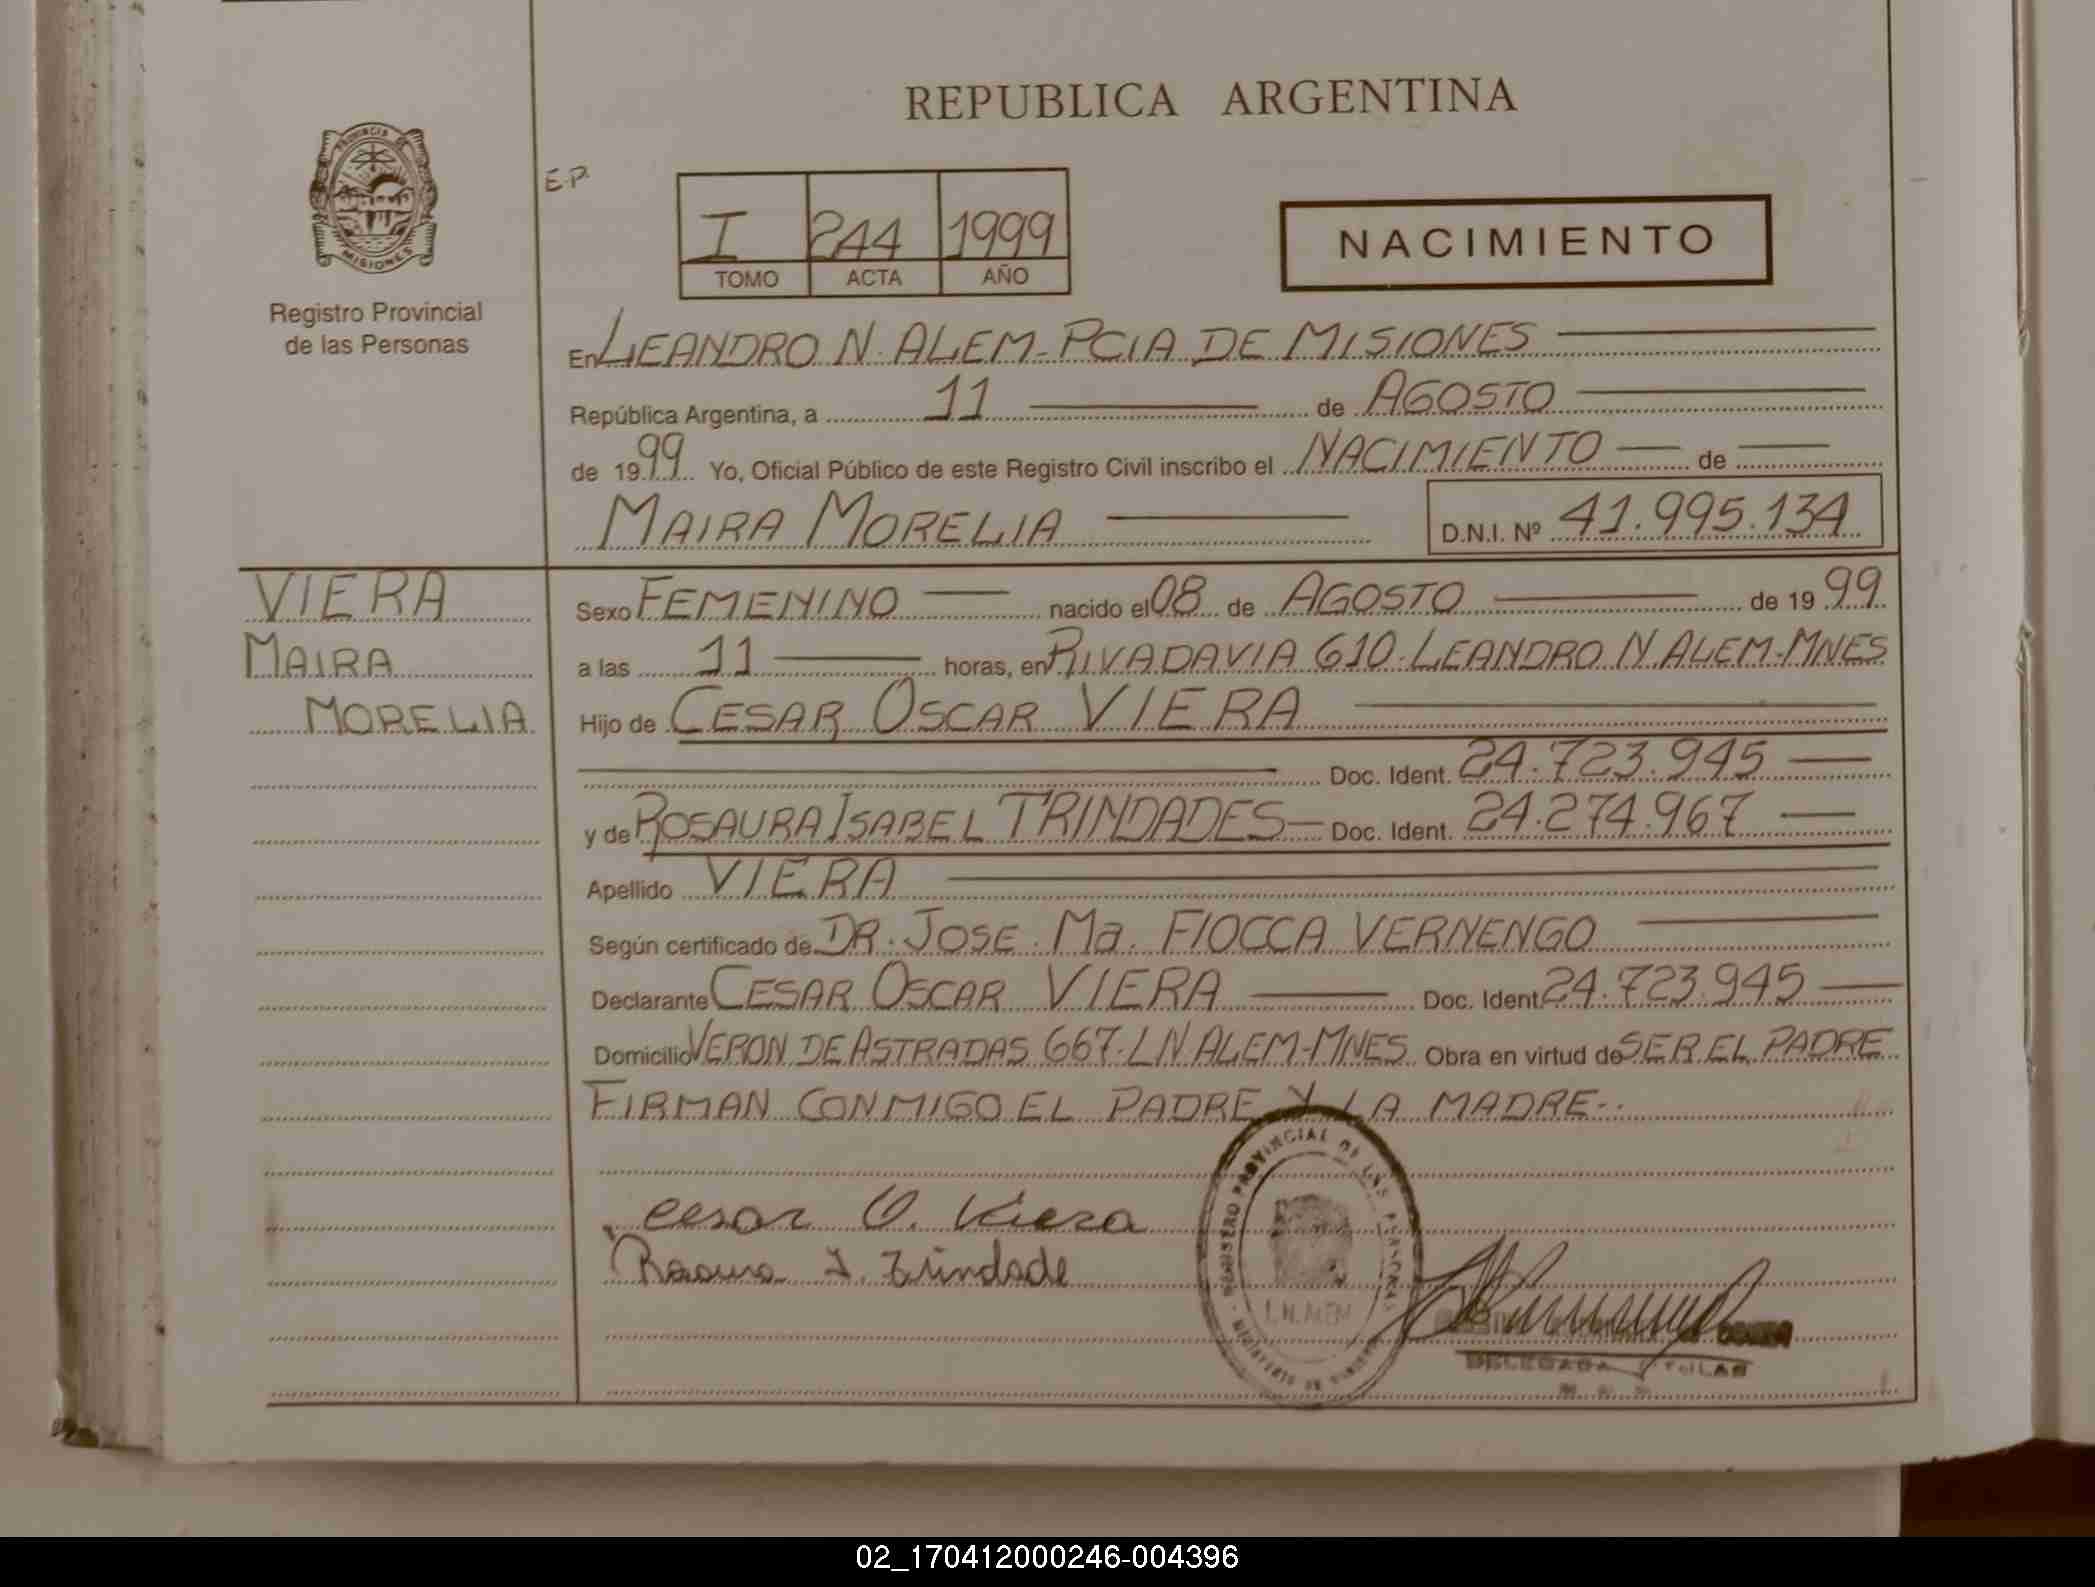 REPUBLICA ARGENTINA
PROVINCIA DE
MISIONES
Registro Provincial
de las Personas
E.P.
I 244 1999
TOMO ACTA AÑO
NACIMIENTO
En LEANDRO N. ALEM - PCIA DE MISIONES
República Argentina, a 11 de AGOSTO
de 1999 Yo, Oficial Público de este Registro Civil inscribo el NACIMIENTO de
MAIRA MORELIA D.N.I. Nº 41.995.134
VIERA
MAIRA
MORELIA
Sexo FEMENINO nacido el 08 de AGOSTO de 1999
a las 11 horas, en RIVADAVIA 610-LEANDRO N ALEM-MNES
Hijo de CESAR OSCAR VIERA
Doc. Ident. 24.723.945
y de ROSAURA ISABEL TRINDADES Doc. Ident. 24.274.967
Apellido VIERA
Según certificado de DR. JOSE Ma. FIOCCA VERNENGO
Declarante CESAR OSCAR VIERA Doc. Ident 24.723.945
Domicilio VERON DE ASTRADAS 667-LN ALEM-MNES Obra en virtud de SER EL PADRE
FIRMAN CONMIGO EL PADRE Y LA MADRE-.
PROVINCIAL DE LAS PERSONAS
L.N. ALEM
Cesar O. Viera
Rosaura I. Trindade
DELEGADA TITULAR
02_170412000246-004396